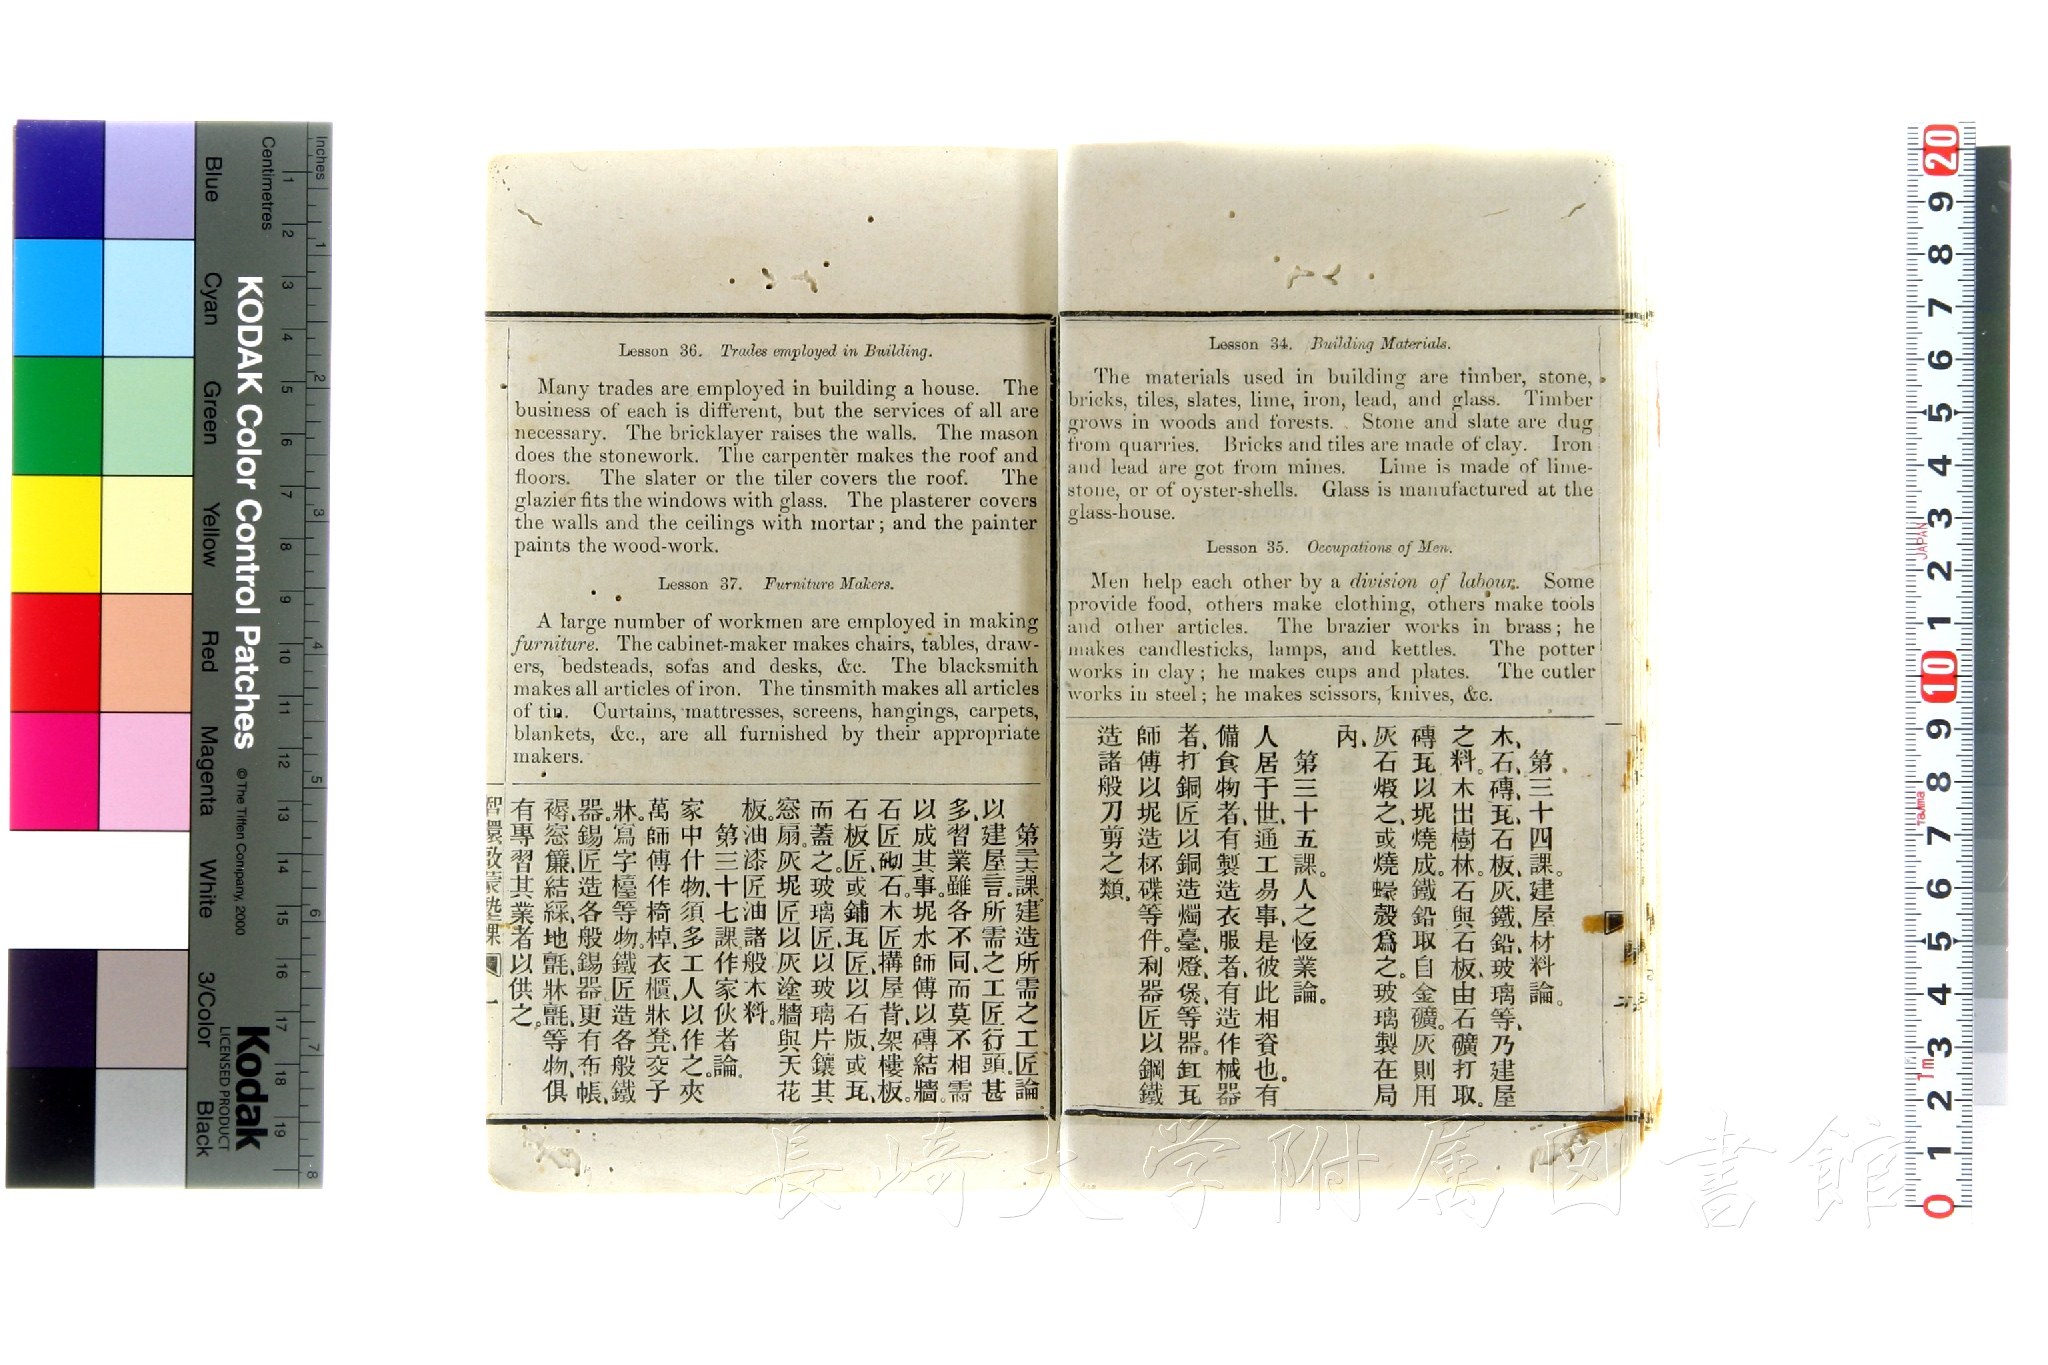 Lesson 34. Building Materials.
The materials used in building are timber, stone,
bricks, tiles, slates, lime, iron, lead, and glass. Timber
grows in woods and forests. Stone and slate are dug
from quarries. Bricks and tiles are made of clay. Iron
and lead are got from mines. Lime is made of lime-
stone, or of oyster-shells. Glass is manufactured at the
glass-house.
Lesson 35. Occupations of Men.
Men help each other by a division of labour. Some
provide food, others make clothing, others make tools
and other articles. The brazier works in brass; he
makes candlesticks, lamps, and kettles. The potter
works in clay; he makes cups and plates. The cutler
works in steel; he makes scissors, knives, &c.
第三十四課。建屋材料論。
木、石、磚、瓦、石板、灰、鐵、鉛、玻璃等、乃建屋
之料。木出樹林。石與石板、由石礦打取。
磚瓦以坭燒成。鐵鉛取自金礦。灰則用
灰石煅之、或燒蠔殼爲之。玻璃製在局
內、
第三十五課。人之恆業論。
人居于世、通工易事、是彼此相資也。有
備食物者、有製造衣服者、有造作械器
者、打銅匠以銅造燭臺、燈、煲、等器。缸瓦
師傅以坭造杯碟等件。利器匠以鋼鐵
造諸般刀剪之類。
Lesson 36. Trades employed in Building.
Many trades are employed in building a house. The
business of each is different, but the services of all are
necessary. The bricklayer raises the walls. The mason
does the stonework. The carpenter makes the roof and
floors. The slater or the tiler covers the roof. The
glazier fits the windows with glass. The plasterer covers
the walls and the ceilings with mortar; and the painter
paints the wood-work.
Lesson 37. Furniture Makers.
A large number of workmen are employed in making
furniture. The cabinet-maker makes chairs, tables, draw-
ers, bedsteads, sofas and desks, &c. The blacksmith
makes all articles of iron. The tinsmith makes all articles
of tin. Curtains, mattresses, screens, hangings, carpets,
blankets, &c., are all furnished by their appropriate
makers.
第三十六課建造所需之工匠論
以建屋言。所需之工匠行頭甚
多、習業雖各不同、而莫不相需
以成其事。坭水師傅以磚結牆。
石匠砌石。木匠構屋背、架樓板。
石板匠、或鋪瓦匠、以石版或瓦、
而蓋之。玻璃匠、以玻璃片鑲其
窓扇。灰坭匠以灰塗牆與天花
板。油漆匠油諸般木料。
第三十七課作家伙者論。
家中什物、須多工人以作之。夾
萬師傅作椅、棹、衣櫃、牀、凳、交子
牀、寫字檯等物。鐵匠造各般鐵
器。錫匠造各般錫器。更有布帳、
褥、窓簾、結綵、地氈、牀氈、等物、俱
有專習其業者、以供之。
智環啟蒙塾課
KODAK Color Control Patches
© The Tiffen Company, 2000
Kodak
LICENSED PRODUCT
Inches
Centimetres
Blue
Cyan
Green
Yellow
Red
Magenta
White
3/Color
Black
1 2 3 4 5 6 7 8 9 10 11 12 13 14 15 16 17 18 19
1 2 3 4 5 6 7 8
20 9 8 7 6 5 4 3 2 1 10 9 8 7 6 5 4 3 2 1 0
JAPAN
Tajima
1m
長崎大学附属図書館